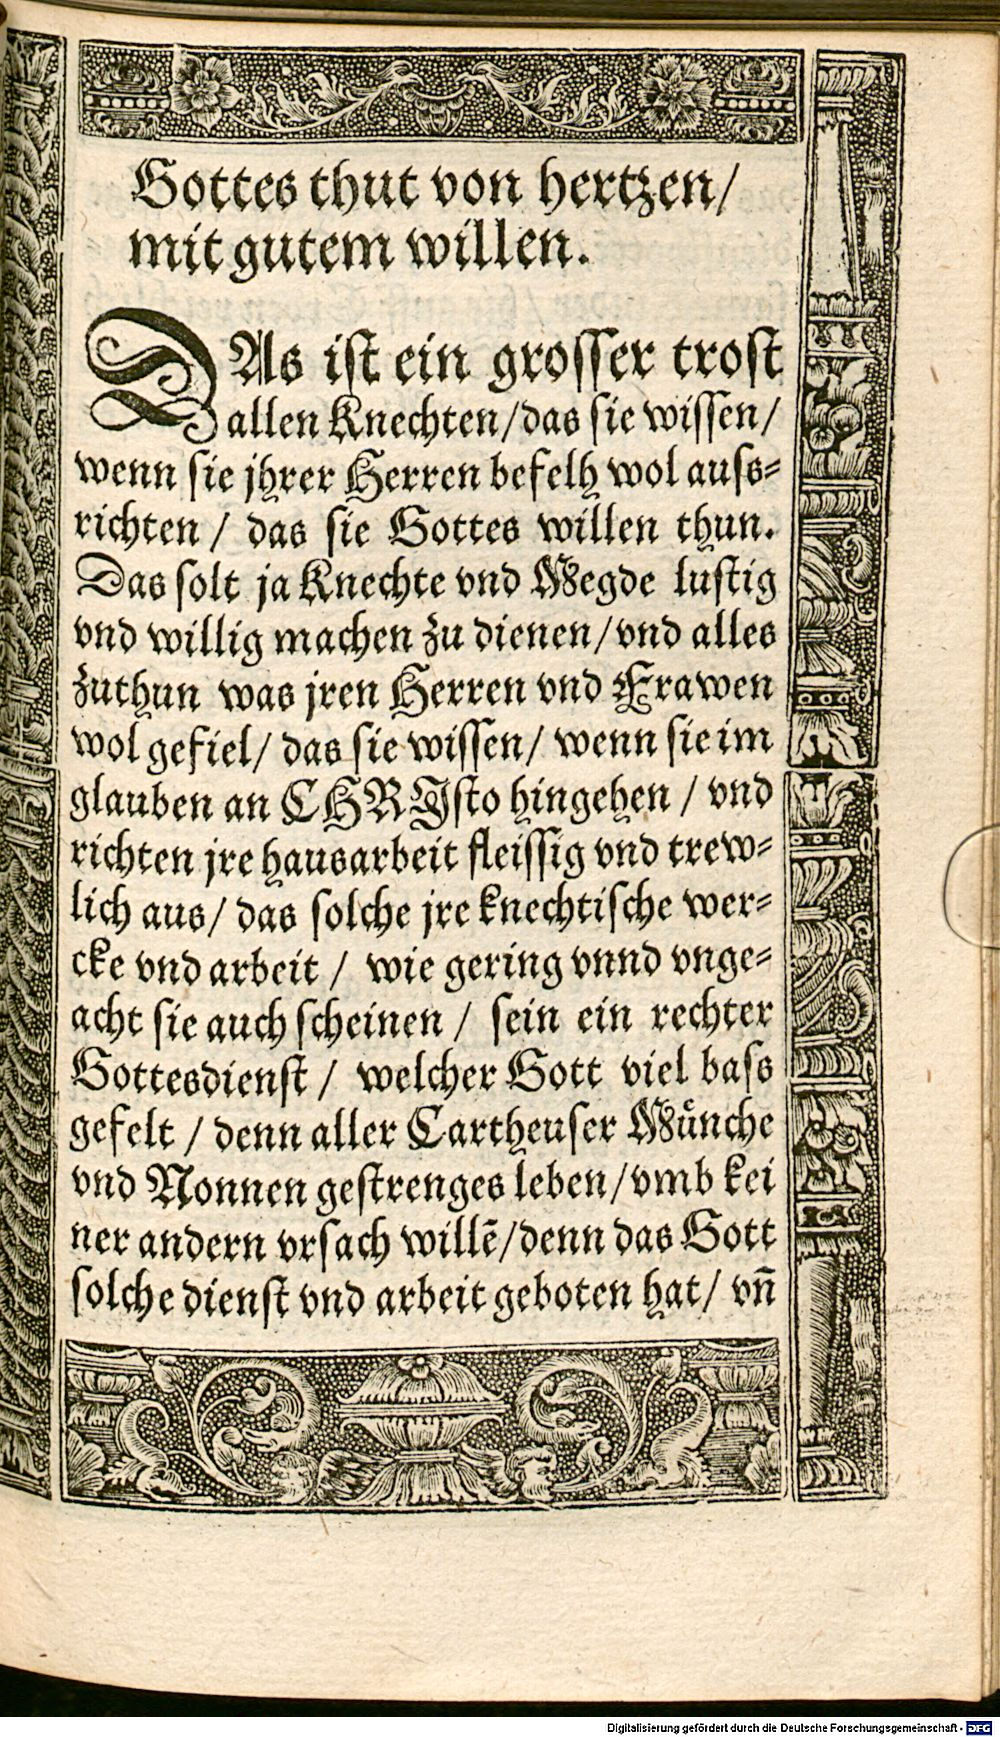 Gottes thut von hertzen/
mit gutem willen.
DAs ist ein grosser trost
allen Knechten/das sie wissen/
wenn sie jhrer Herren befelh wol auss-
richten / das sie Gottes willen thun.
Das solt ja Knechte vnd Megde lustig
vnd willig machen zu dienen/vnd alles
zuthun was jren Herren vnd Frawen
wol gefiel/ das sie wissen/ wenn sie im
glauben an CHRJsto hingehen / vnd
richten jre hausarbeit fleissig vnd trew-
lich aus/ das solche jre knechtische wer-
cke vnd arbeit / wie gering vnnd vnge-
acht sie auch scheinen / sein ein rechter
Gottesdienst / welcher Gott viel bass
gefelt / denn aller Cartheuser Muͤnche
vnd Nonnen gestrenges leben/vmb kei
ner andern vrsach willē/denn das Gott
solche dienst vnd arbeit geboten hat/ vn̄
Digitalisierung gefördert durch die Deutsche Forschungsgemeinschaft - DFG